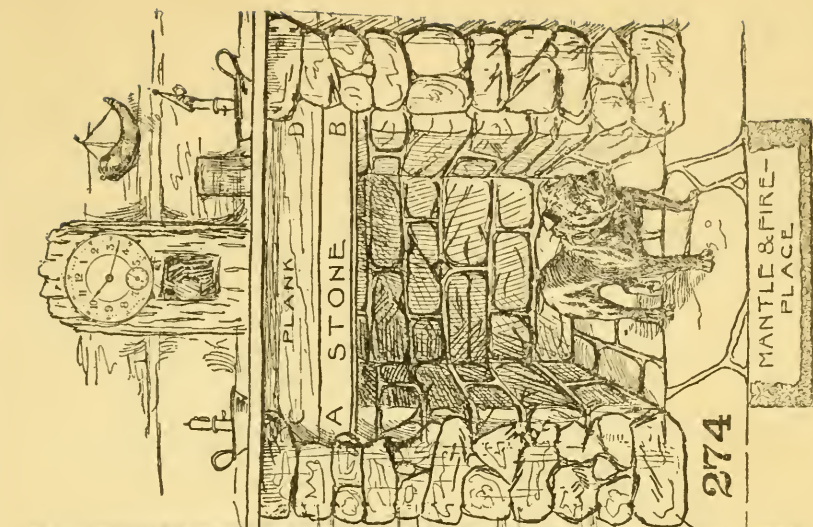 PLANK D
A STONE B
274
MANTLE & FIRE-
PLACE